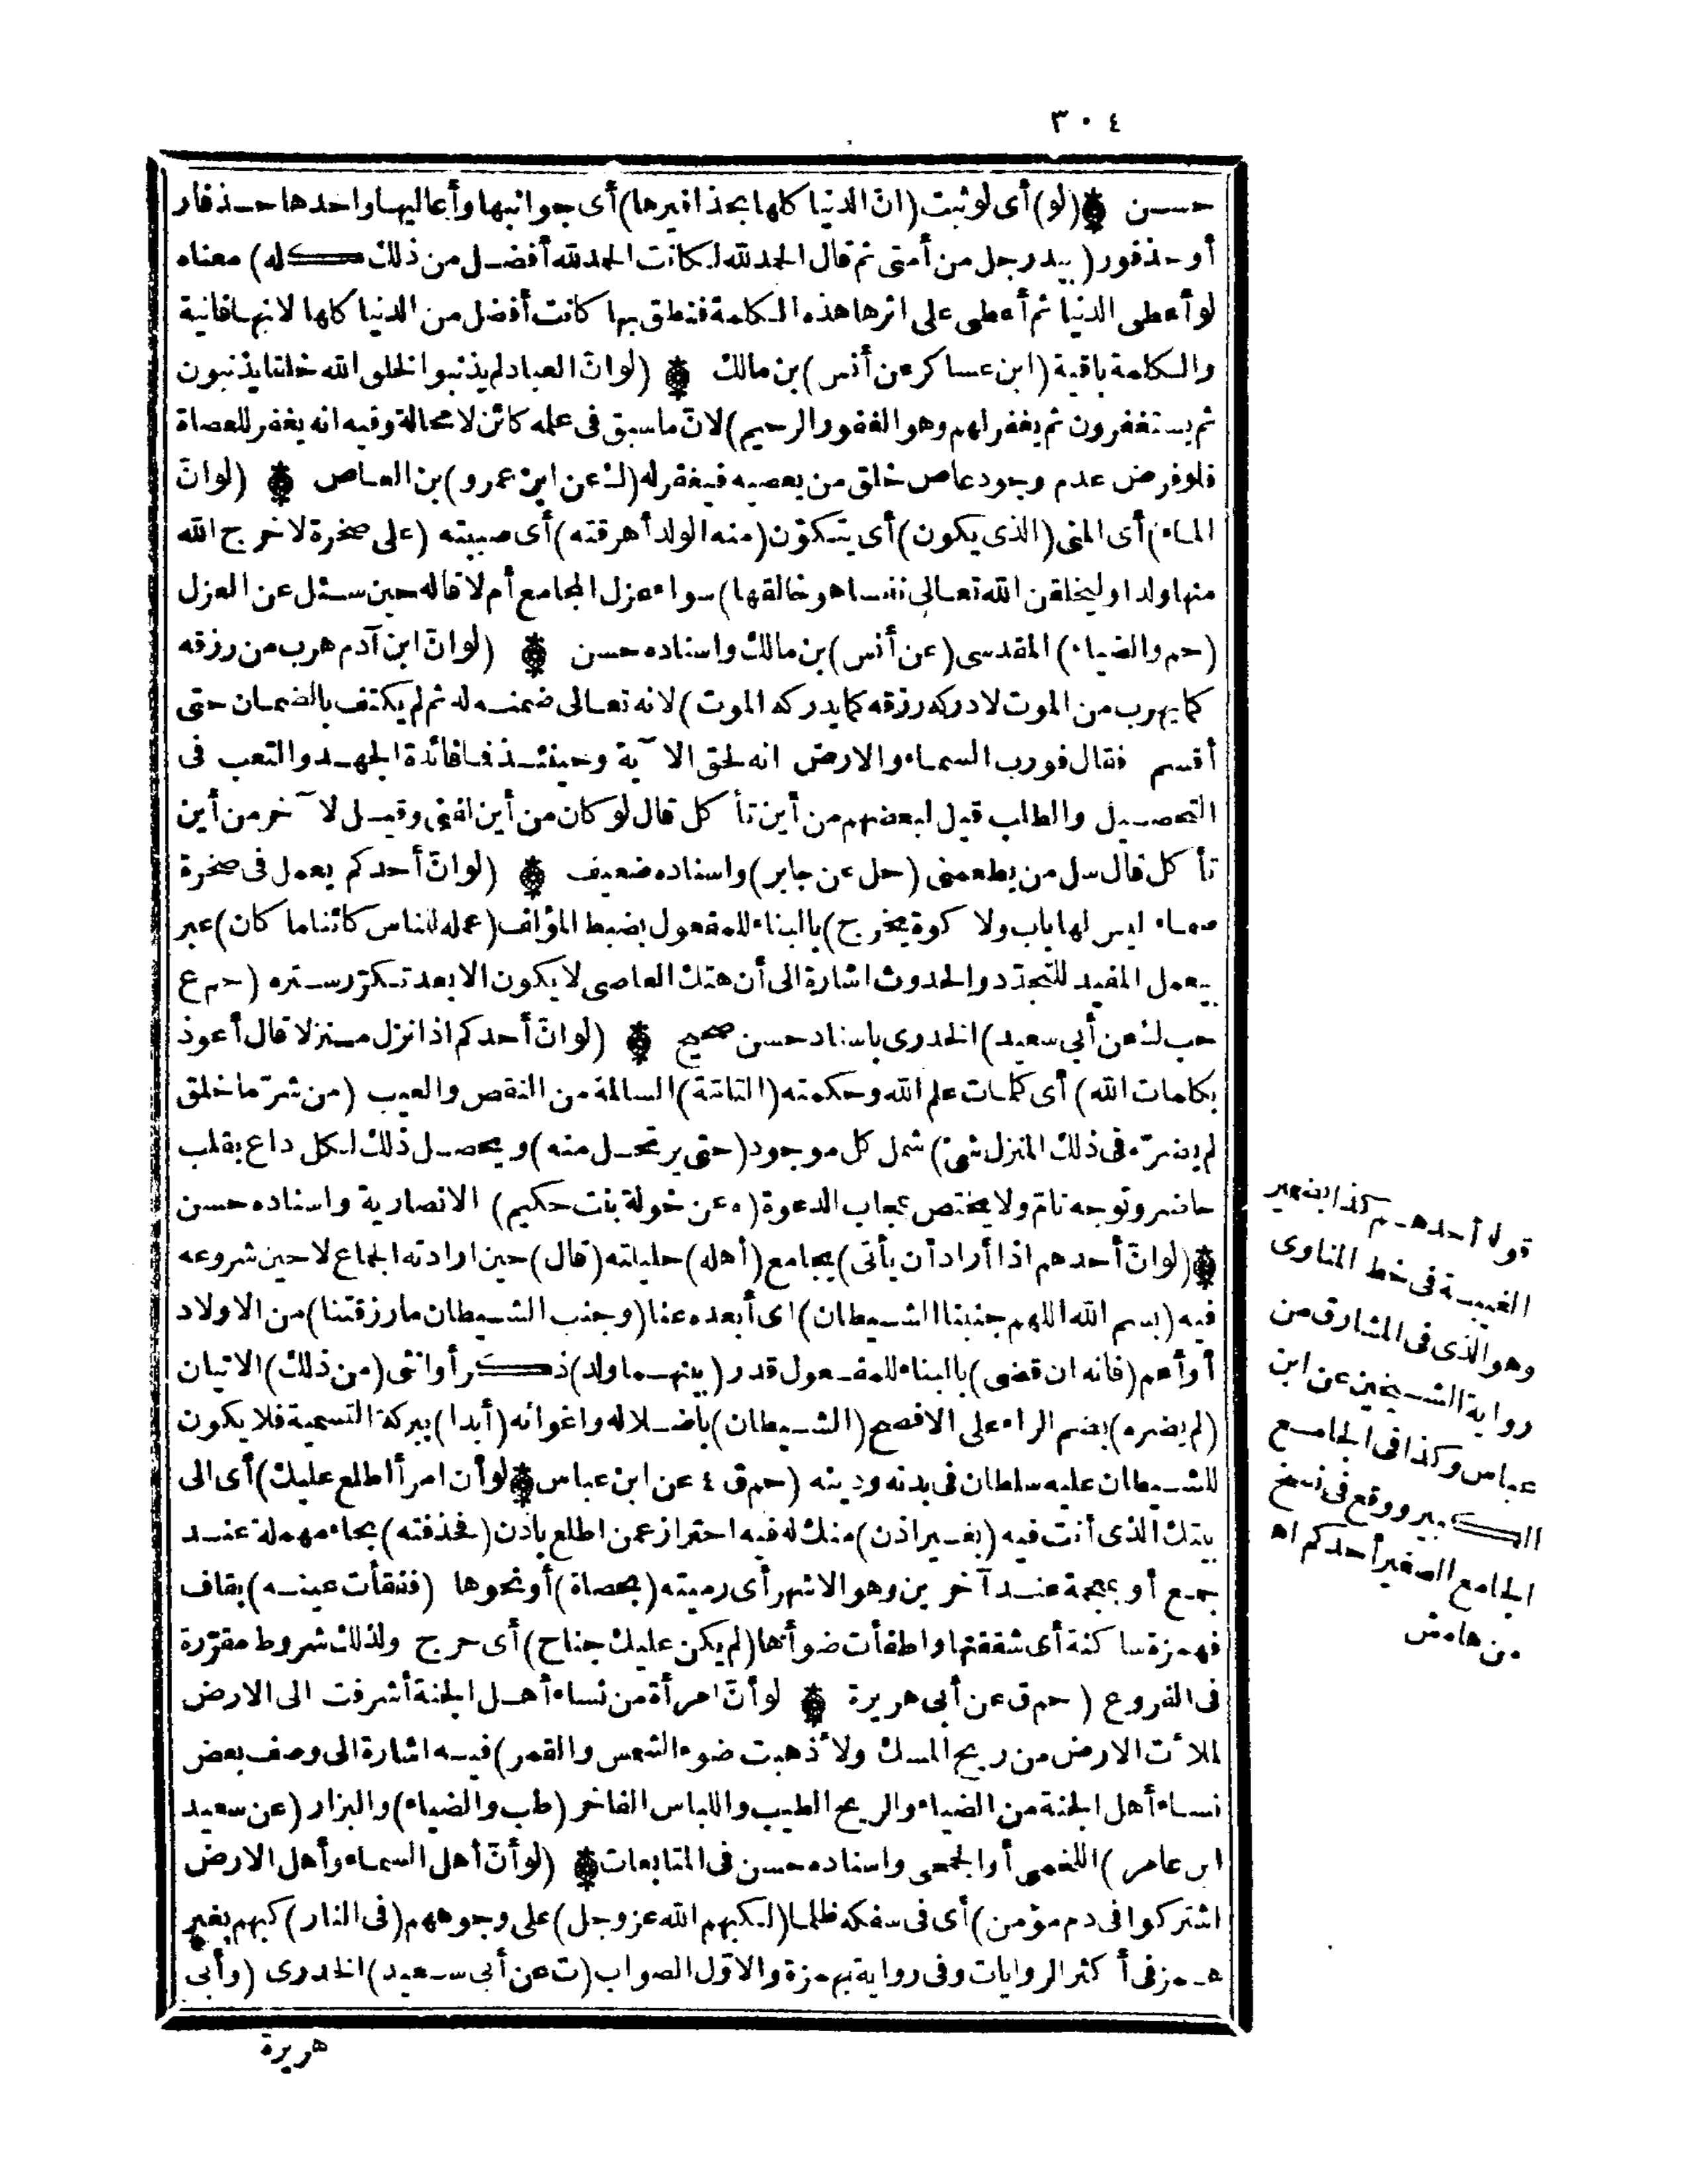 ٣٠٤
حسن ۞ (لو) أى لو ثبت (انّ الدنيا كلها بحذافيرها) أى جوانبها وأعاليها واحدها حذفار
أو حذفور (بيد رجل من أمتى ثم قال الحمد لله لكانت الحمد لله أفضل من ذلك كله) معناه
لو أعطى الدنيا ثم أعطى على اثرها هذه الكلمة فنطق بها كانت أفضل من الدنيا كلها لانها فانية
والكلمة باقية (ابن عساكر عن أنس) بن مالك ۞ (لو انّ العباد لم يذنبوا لخلق الله خلقا يذنبون
ثم يستغفرون ثم يغفر لهم وهو الغفور الرحيم) لانّ ما سبق فى علمه كائن لا محالة وفيه انه يغفر للعصاة
فلو فرض عدم وجود عاص خلق من يعصيه فيغفر له (ك عن ابن عمرو) بن العاص ۞ (لو انّ
الماء) أى المنى (الذى يكون) أى يتكوّن (منه الولد أهرقته) أى صببته (على صخرة لاخرج الله
منها ولدا وليخلقن الله تعالى نفسا هو خالقها) سواء عزل المجامع أم لا قاله حين سئل عن العزل
(حم والضياء) المقدسى (عن أنس) بن مالك واسناده حسن ۞ (لو انّ ابن آدم هرب من رزقه
كما يهرب من الموت لادركه رزقه كما يدركه الموت) لانه تعالى ضمنه له ثم لم يكتف بالضمان حتى
أقسم فقال فورب السماء والارض انه لحق الآية وحينئذ فما فائدة الجهد والتعب فى
التحصيل والطلب قيل لبعضهم من أين تأكل قال لو كان من أين لفنى وقيل لآخر من أين
تأكل قال سل من يطعمنى (حل عن جابر) واسناده ضعيف ۞ (لو انّ أحدكم يعمل فى صخرة
صماء ليس لها باب ولا كوة يخرج) بالبناء للمفعول بضبط المؤلف (عمله للناس كائنا ما كان) عبر
بيعمل المفيد للتجدّد والحدوث اشارة الى أن هتك العاصى لا يكون الا بعد تكرّر ستره (حم ع
حب ك عن أبى سعيد) الخدرى باسناد حسن صحيح ۞ (لو انّ أحدكم اذا نزل منزلا قال أعوذ
بكلمات الله) أى كلمات علم الله وحكمته (التامّة) السالمة من النقص والعيب (من شرّ ما خلق
لم يضرّه فى ذلك المنزل شئ) شمل كل موجود (حتى يرتحل منه) ويحصل ذلك لكل داع بقلب
حاضر وتوجه تامّ ولا يختص بمجاب الدعوة (ه عن خولة بنت حكيم) الانصارية واسناده حسن
۞ (لو انّ أحدهم اذا أراد أن يأتى) يجامع (أهله) حليلته (قال) حين ارادته الجماع لا حين شروعه
فيه (بسم الله اللهم جنبنا الشيطان) اى أبعده عنا (وجنب الشيطان ما رزقتنا) من الاولاد
أو أعم (فانه ان قضى) بالبناء للمفعول قدر (بينهما ولد) ذكر أو انثى (من ذلك) الاتيان
(لم يضره) بضم الراء على الافصح (الشيطان) باضلاله واغوائه (أبدا) ببركة التسمية فلا يكون
للشيطان عليه سلطان فى بدنه ودينه (حم ق ٤ عن ابن عباس ۞ لو أن امرأ اطلع عليك) أى الى
بيتك الذى أنت فيه (بغير اذن) منك له فيه احتراز عمن اطلع باذن (فحذفته) بحاء مهملة عند
جمع أو بمعجمة عند آخرين وهو الاشهر أى رميته (بحصاة) أو نحوها (ففقأت عينه) بقاف
فهمزة ساكنة أى شققتها واطفأت ضوأها (لم يكن عليك جناح) أى حرج ولذلك شروط مقرّرة
فى الفروع (حم ق عن أبى هريرة ۞ لو أنّ امرأة من نساء أهل الجنة أشرفت الى الارض
لملأت الارض من ريح المسك ولأذهبت ضوء الشمس والقمر) فيه اشارة الى وصف بعض
نساء أهل الجنة من الضياء والريح الطيب واللباس الفاخر (طب والضياء) والبزار (عن سعيد
ابن عامر) اللخمى أو الجمحى واسناده حسن فى المتابعات ۞ (لو أنّ أهل السماء وأهل الارض
اشتركوا فى دم مؤمن) أى فى سفكه ظلما (لكبهم الله عز وجل) على وجوههم (فى النار) كبهم بغير
همز فى أكثر الروايات وفى رواية بهمزة والاوّل الصواب (ت عن أبى سعيد) الخدرى (وأبى
هريرة
قوله أحدهم كذا بضمير
الغيبة فى خط المناوى
وهو الذى فى المشارق من
رواية الشيخين عن ابن
عباس وكذا فى الجامع
الكبير ووقع فى نسخ
الجامع الصغير أحدكم اه
من هامش